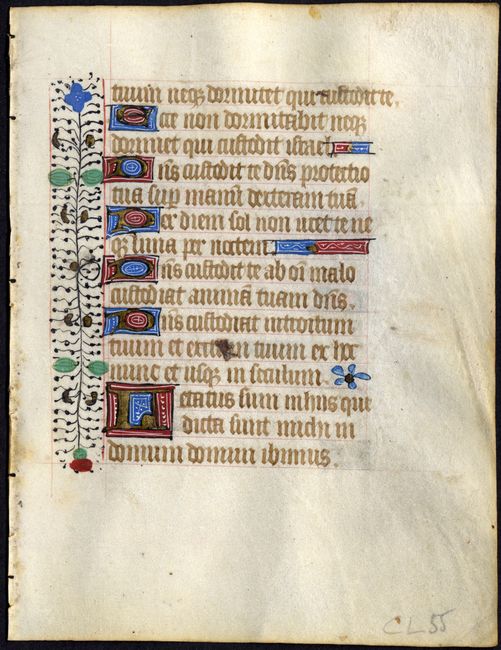 tuum neq; dormitet qui custodit te.
Ecce non dormitabit neq;
dormiet qui custodit israel
Dñs custodit te dñs protectio
tua sup manũ dexteram tuã
Per diem sol non uret te ne
q; luna per noctem
Dñs custodit te ab oĩ malo
custodiat animã tuam dñs.
Dñs custodiat introitum
tuum et exitum tuum ex hoc
nunc et usq; in seculum
Letatus sum in hiis que
dicta sunt michi in
domum domini ibimus.
CL 55